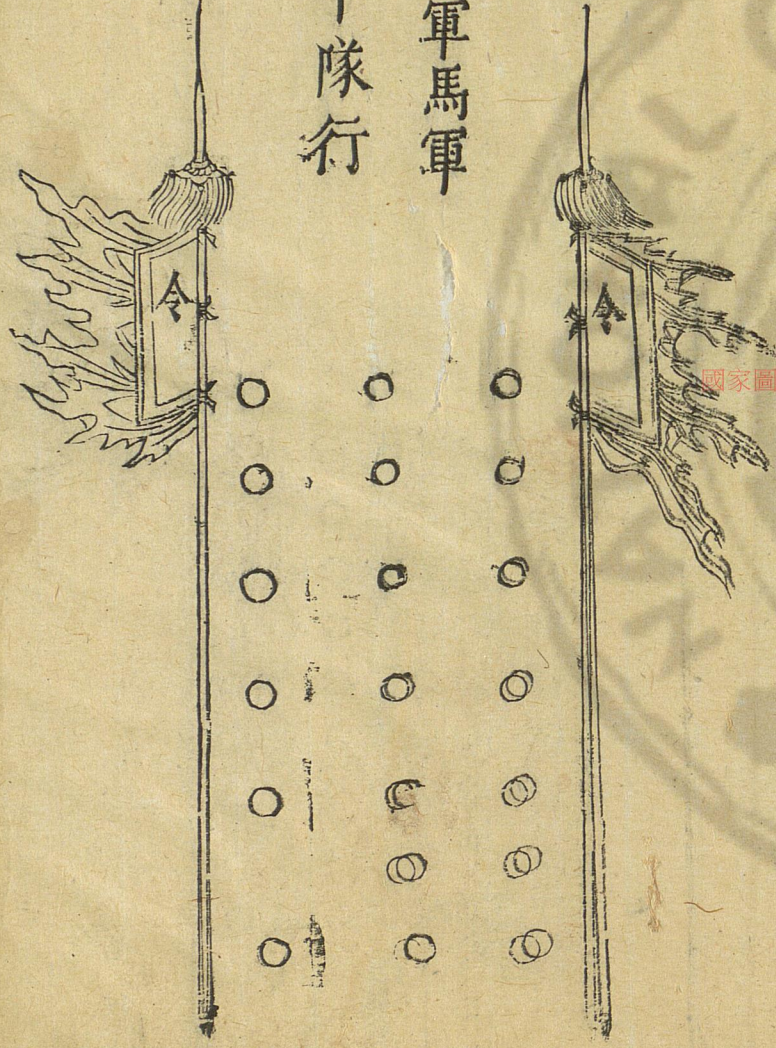 軍馬軍
隊行
令
令
國家圖